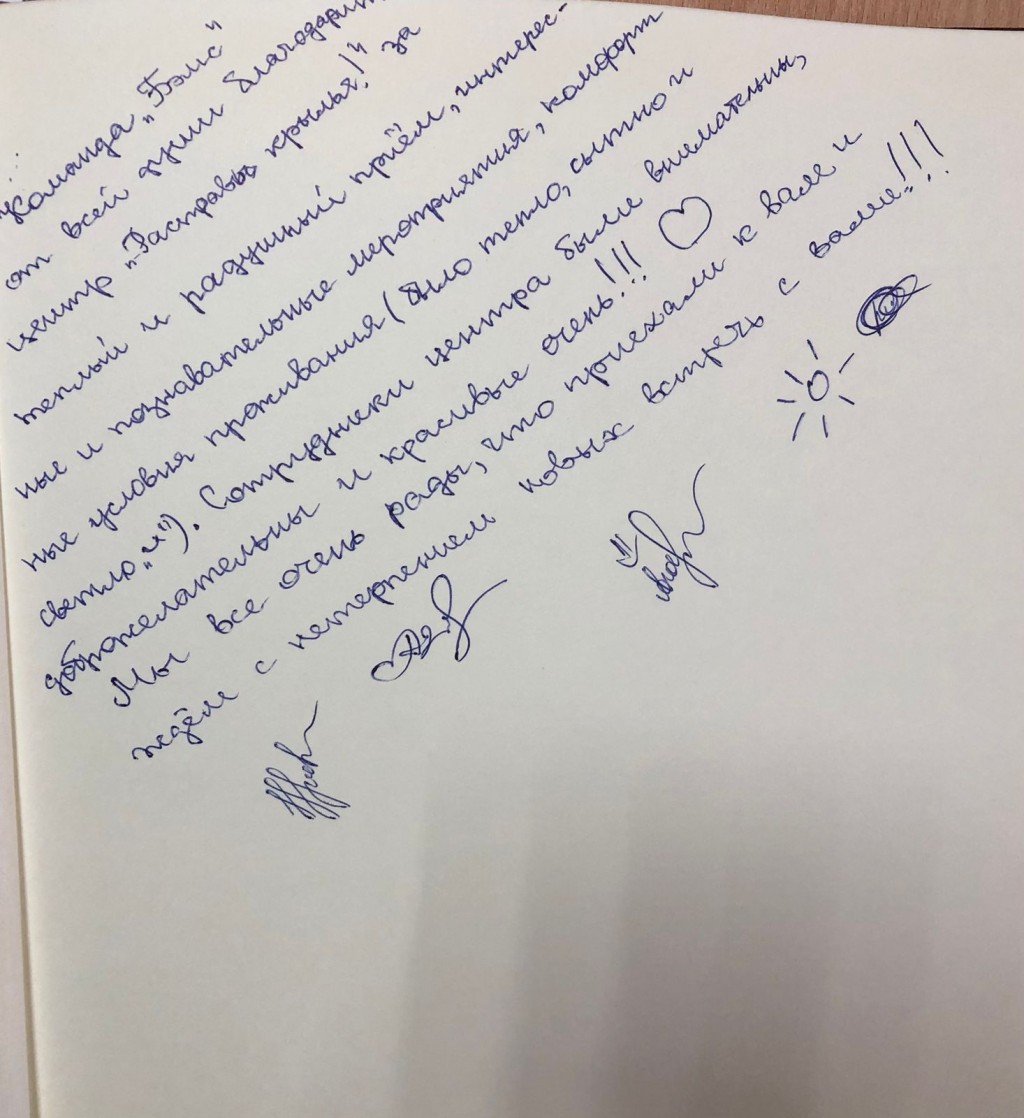 Команда „Бэмс"
от всей души благодарит
центр „Расправь крылья!" за
теплый и радушный приём, интерес-
ные и познавательные мероприятия, комфорт
ные условия проживания (было тепло, сытно и
светло „и"). Сотрудники центра были внимательны,
доброжелательны и красивые очень!!!
Мы все очень рады, что приехали к вам и
ждём с нетерпением новых встреч с вами!!!